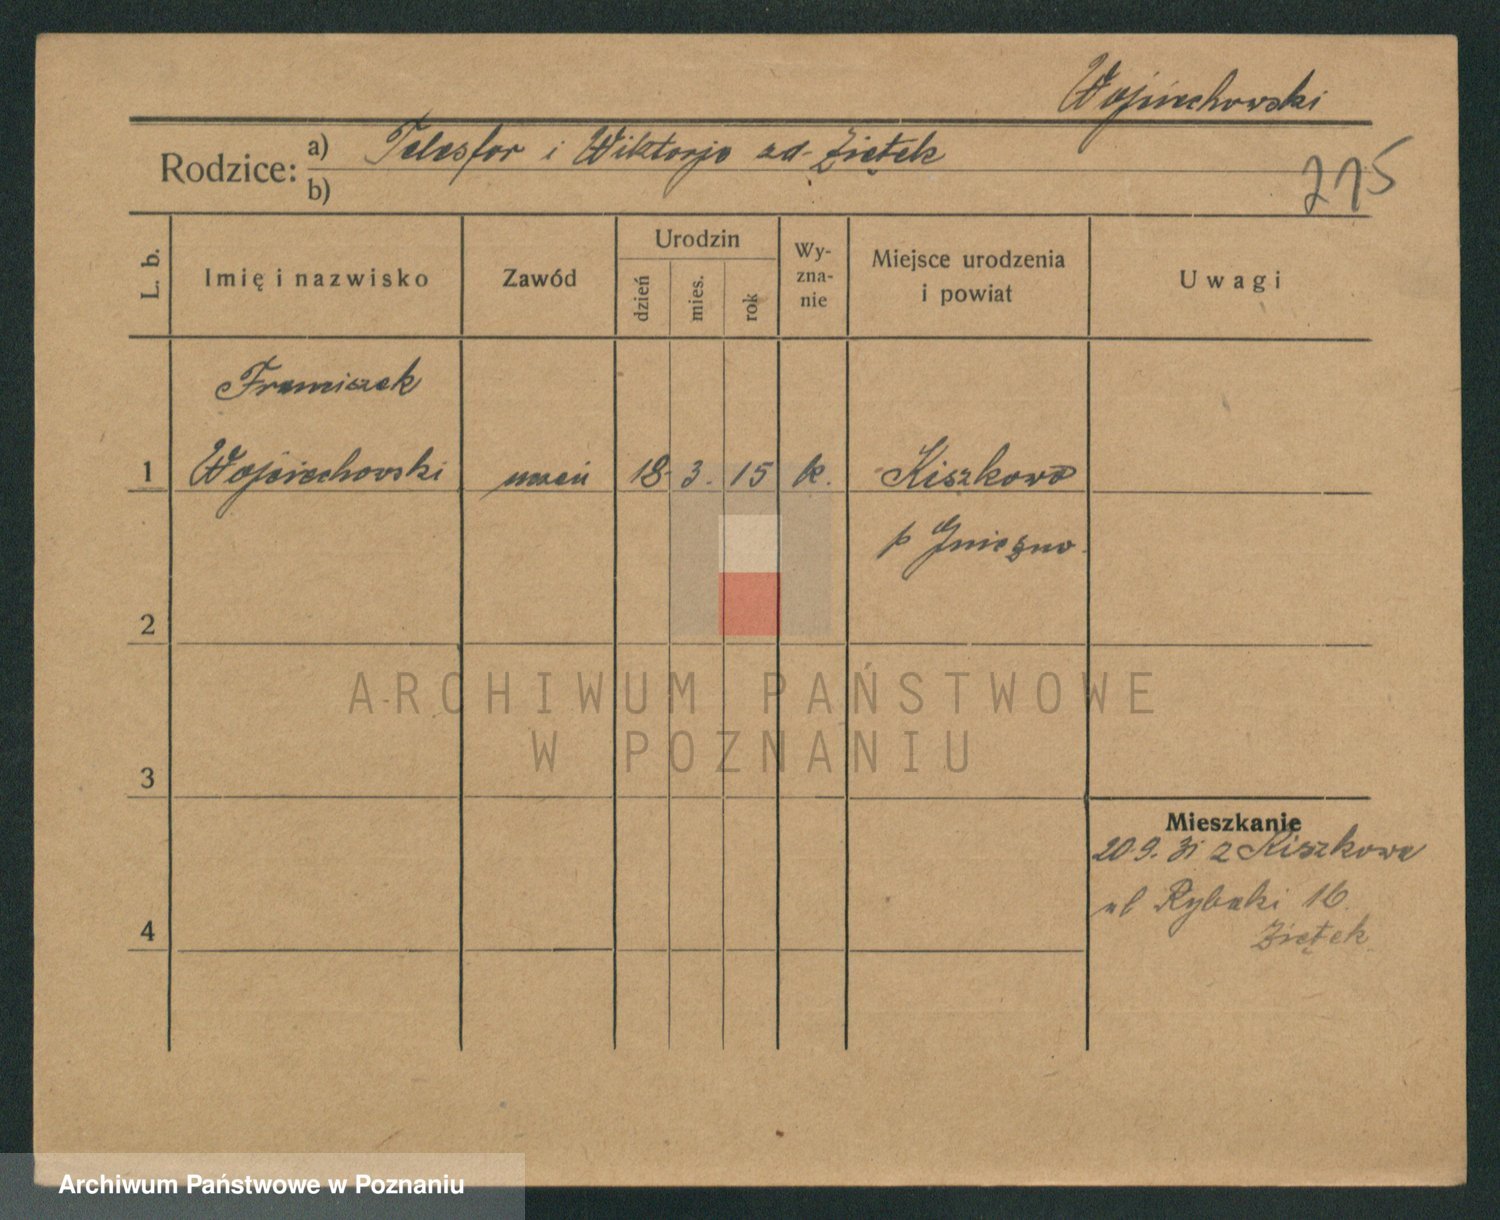 Wojciechowski
Rodzice: a) Telesfor i Wiktorja zd. Ziętek
b)
215
L. b.
Imię i nazwisko
Zawód
Urodzin
dzień
mies.
rok
Wy-
zna-
nie
Miejsce urodzenia
i powiat
Uwagi
Franciszek
1 Wojciechowski uczeń 18. 3. 15 k. Kiszkowo
p Gniezno.
2
ARCHIWUM PAŃSTWOWE
W POZNANIU
3
Mieszkanie
20.9.31 z Kiszkowa
ul Rybaki 16.
Ziętek
4
Archiwum Państwowe w Poznaniu